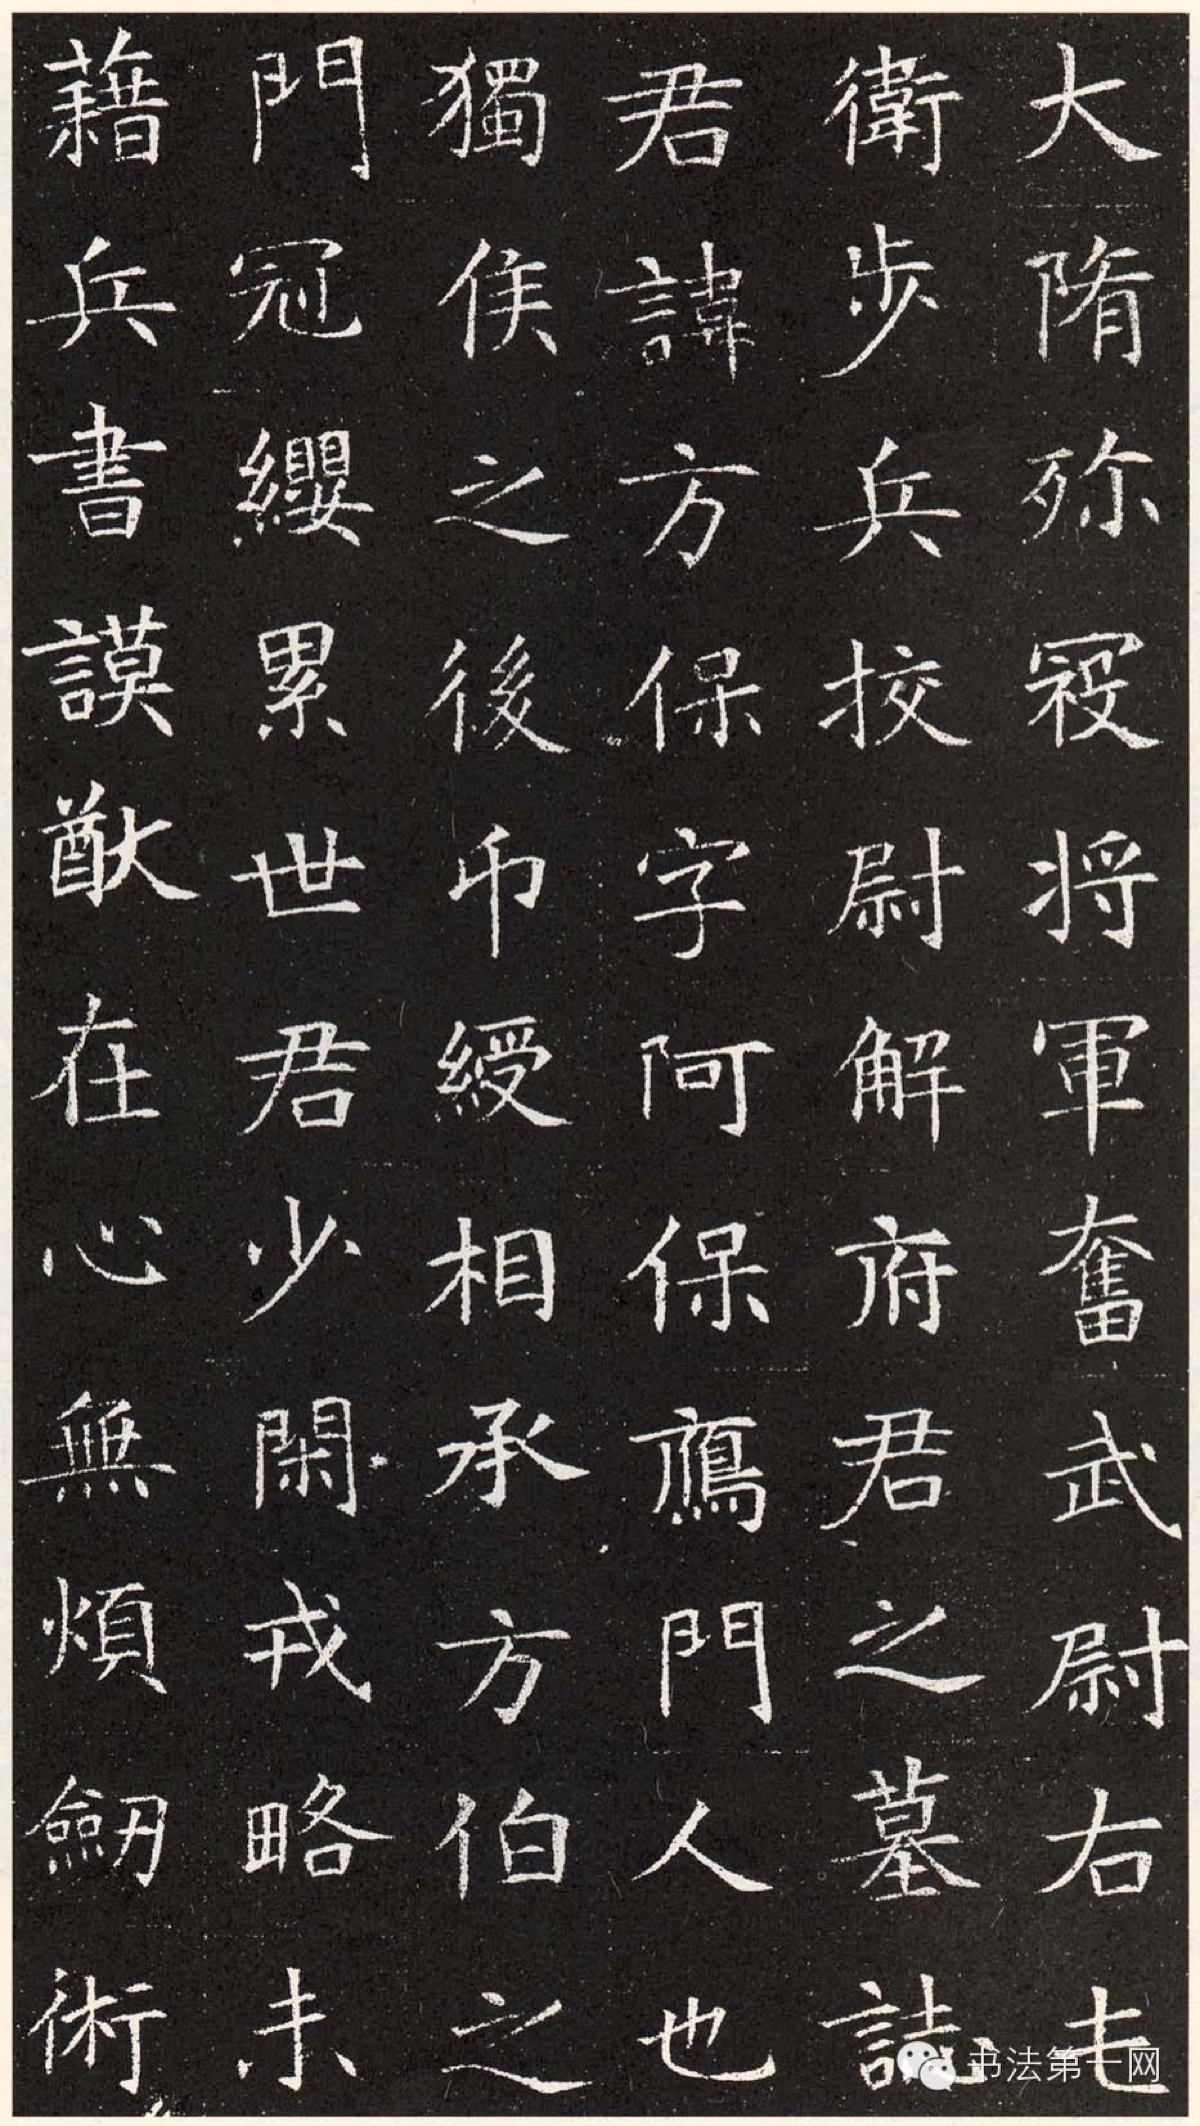 大隋殄寇将軍奮武尉右屯
衛步兵挍尉解府君之墓誌
君諱方保字阿保鴈門人也
獨侯之後印綬相承方伯之
門冠纓累世君少閑戎略未
藉兵書謨猷在心無煩劒術
书法第一网